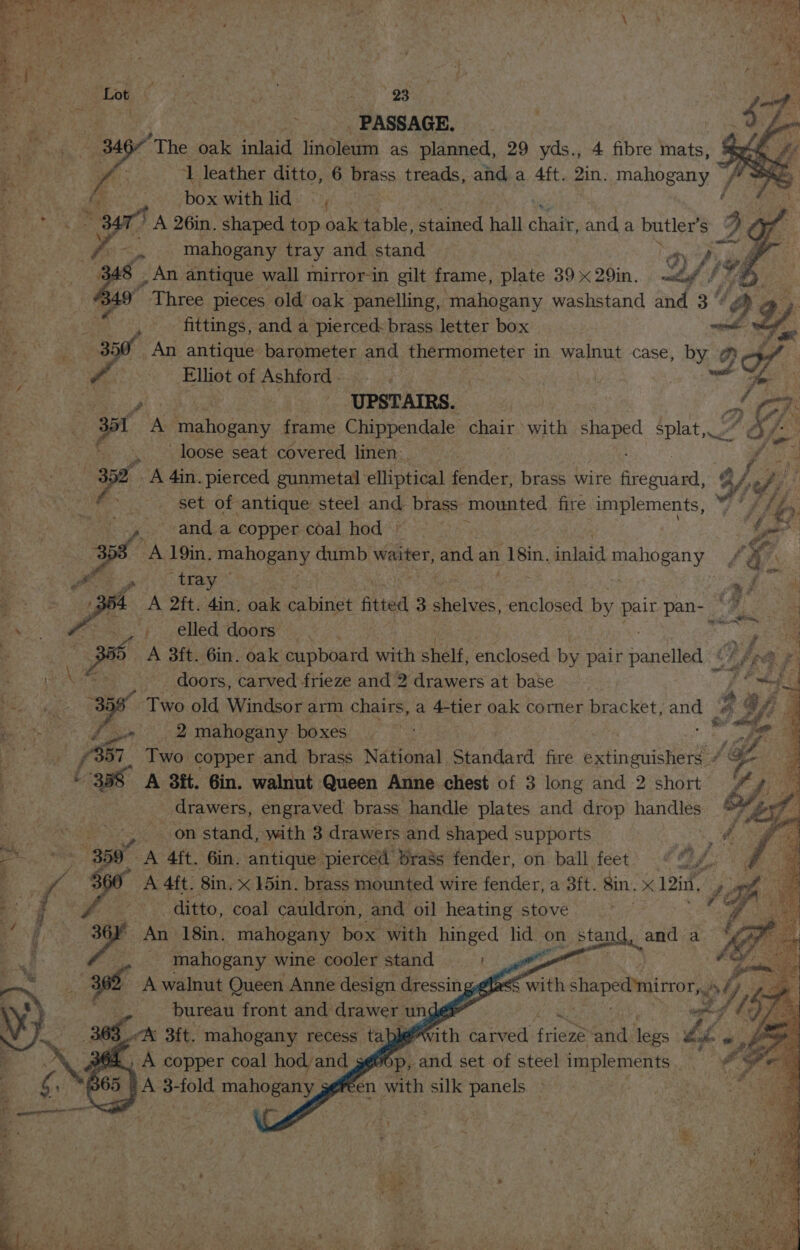 Lot 23
PASSAGE.
346 The oak inlaid linoleum as planned, 29 yds., 4 fibre mats,
1 leather ditto, 6 brass treads, and a 4ft. 2in. mahogany
box with lid
347 A 26in. shaped top oak table, stained hall chair, and a butler's
mahogany tray and stand
348 An antique wall mirror in gilt frame, plate 39 × 29in.
349 Three pieces old oak panelling, mahogany washstand and 3
fittings, and a pierced brass letter box
350 An antique barometer and thermometer in walnut case, by
Elliot of Ashford
UPSTAIRS.
351 A mahogany frame Chippendale chair with shaped splat,
loose seat covered linen
352 A 4in. pierced gunmetal elliptical fender, brass wire fireguard,
set of antique steel and brass mounted fire implements,
and a copper coal hod
353 A 19in. mahogany dumb waiter, and an 18in. inlaid mahogany
tray
354 A 2ft. 4in. oak cabinet fitted 3 shelves, enclosed by pair pan-
elled doors
355 A 3ft. 6in. oak cupboard with shelf, enclosed by pair panelled
doors, carved frieze and 2 drawers at base
356 Two old Windsor arm chairs, a 4-tier oak corner bracket, and
2 mahogany boxes
357 Two copper and brass National Standard fire extinguishers
358 A 3ft. 6in. walnut Queen Anne chest of 3 long and 2 short
drawers, engraved brass handle plates and drop handles
on stand, with 3 drawers and shaped supports
359 A 4ft. 6in. antique pierced brass fender, on ball feet
360 A 4ft. 8in. × 15in. brass mounted wire fender, a 3ft. 8in. × 12in.
ditto, coal cauldron, and oil heating stove
361 An 18in. mahogany box with hinged lid on stand, and a
mahogany wine cooler stand
362 A walnut Queen Anne design dressing glass with shaped mirror,
bureau front and drawer under
363 A 3ft. mahogany recess table with carved frieze and legs
364 A copper coal hod and scoop, and set of steel implements
365 A 3-fold mahogany screen with silk panels